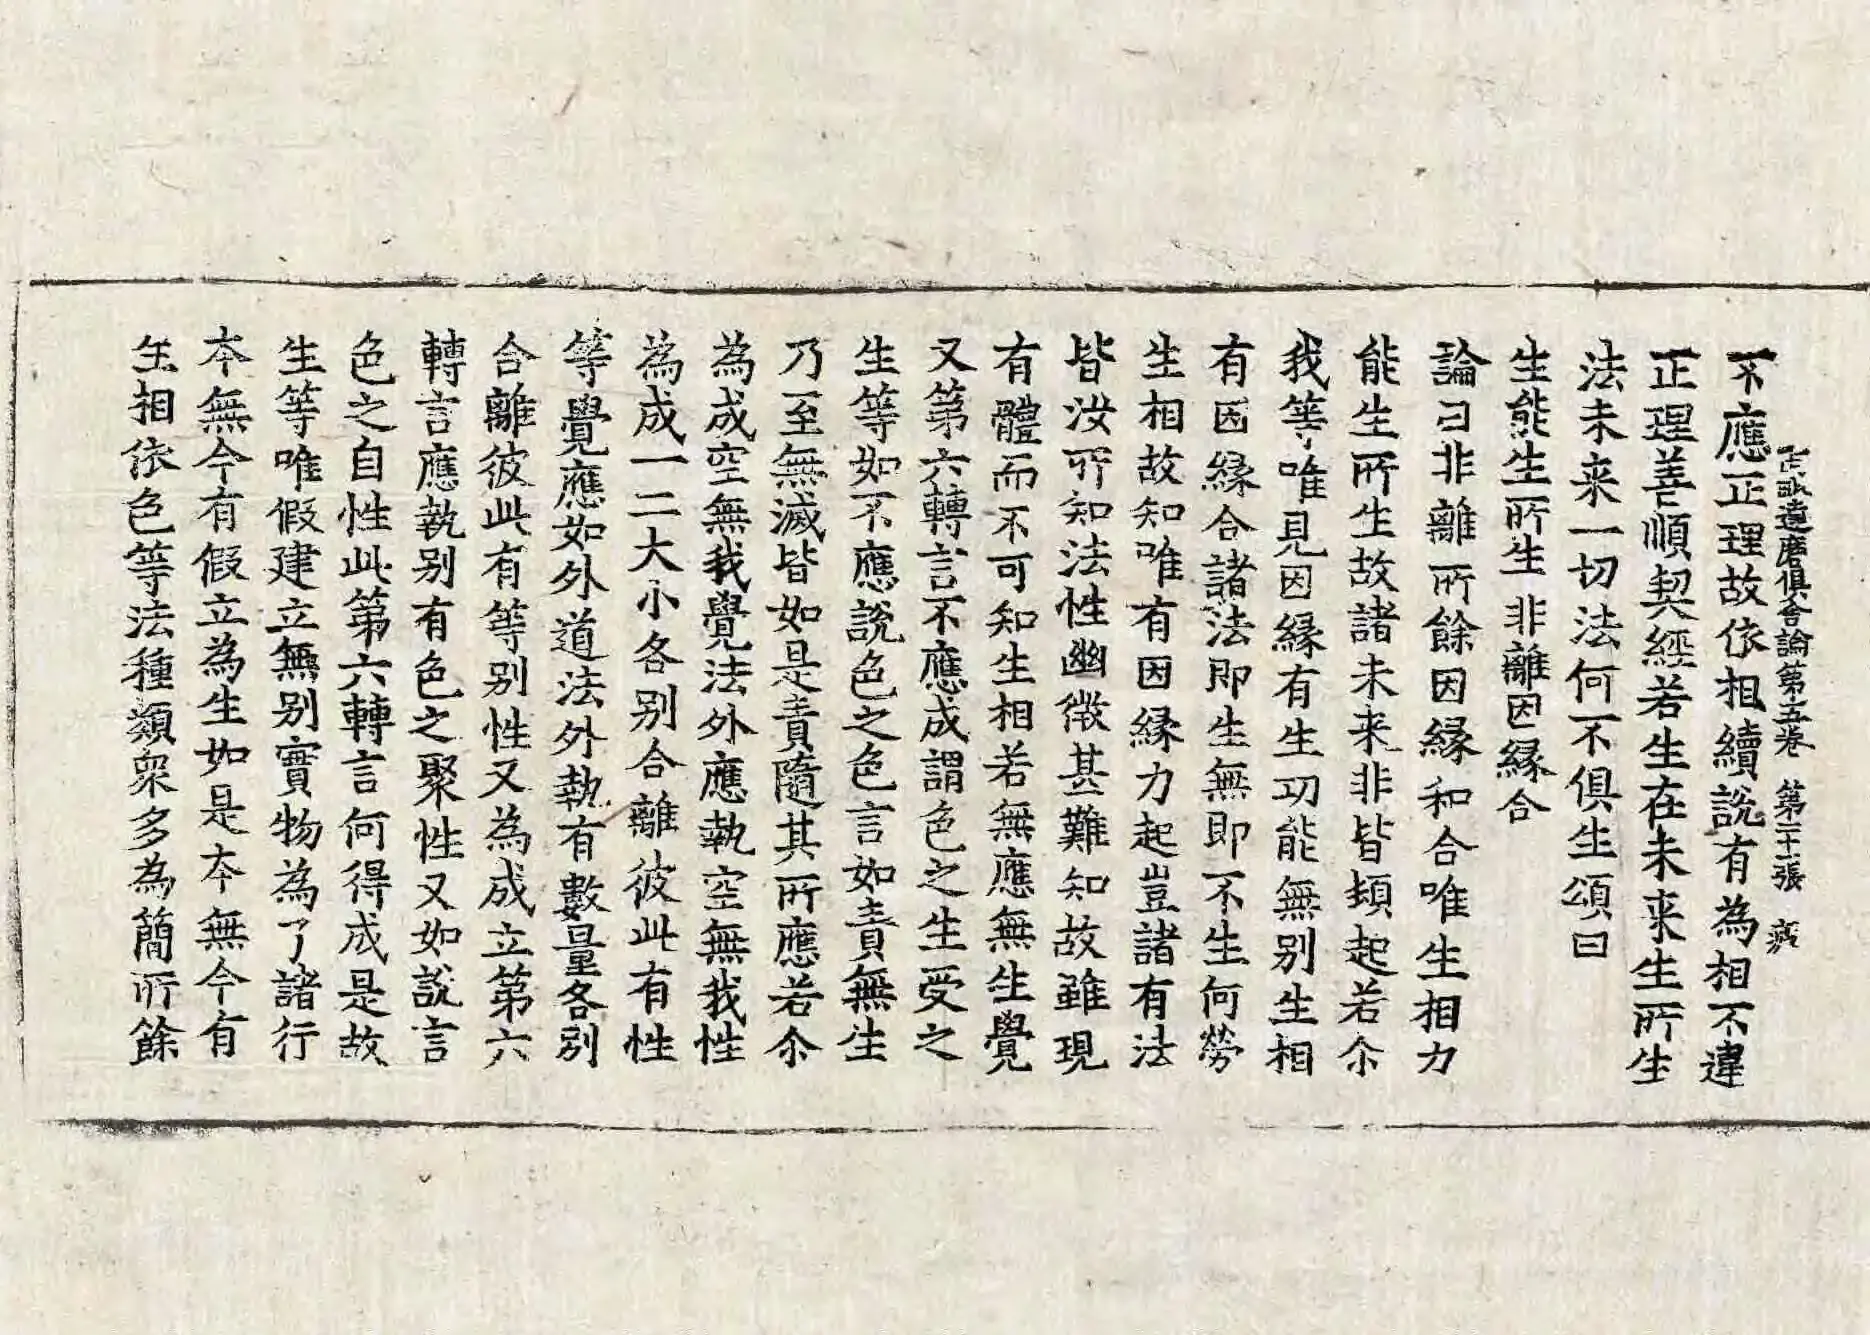 阿毗達磨俱舍論第五卷 第二十張
不應正理故依相續說有為相不違
正理善順契經若生在未来生所生
法未来一切法何不俱生頌曰
生能生所生非離因縁合
論曰非離所餘因縁和合唯生相力
能生所生故諸未来非皆頓起若尒
我等唯見因縁有生功能無別生相
有因縁合諸法即生無即不生何勞
生相故知唯有因縁力起豈諸有法
皆汝所知法性幽微甚難知故雖現
有體而不可知生相若無應無生覺
又第六轉言不應成謂色之生受之
生等如不應說色之色言如責無生
乃至無滅皆如是責隨其所應若尒
為成空無我覺法外應執空無我性
為成一二大小各别合離彼此有性
等覺應如外道法外執有數量各別
合離彼此有等别性又為成立第六
轉言應執别有色之聚性又如說言
色之自性此第六轉言何得成是故
生等唯假建立無别實物為了諸行
本無今有假立為生如是本無今有
生相依色等法種類衆多為簡所餘